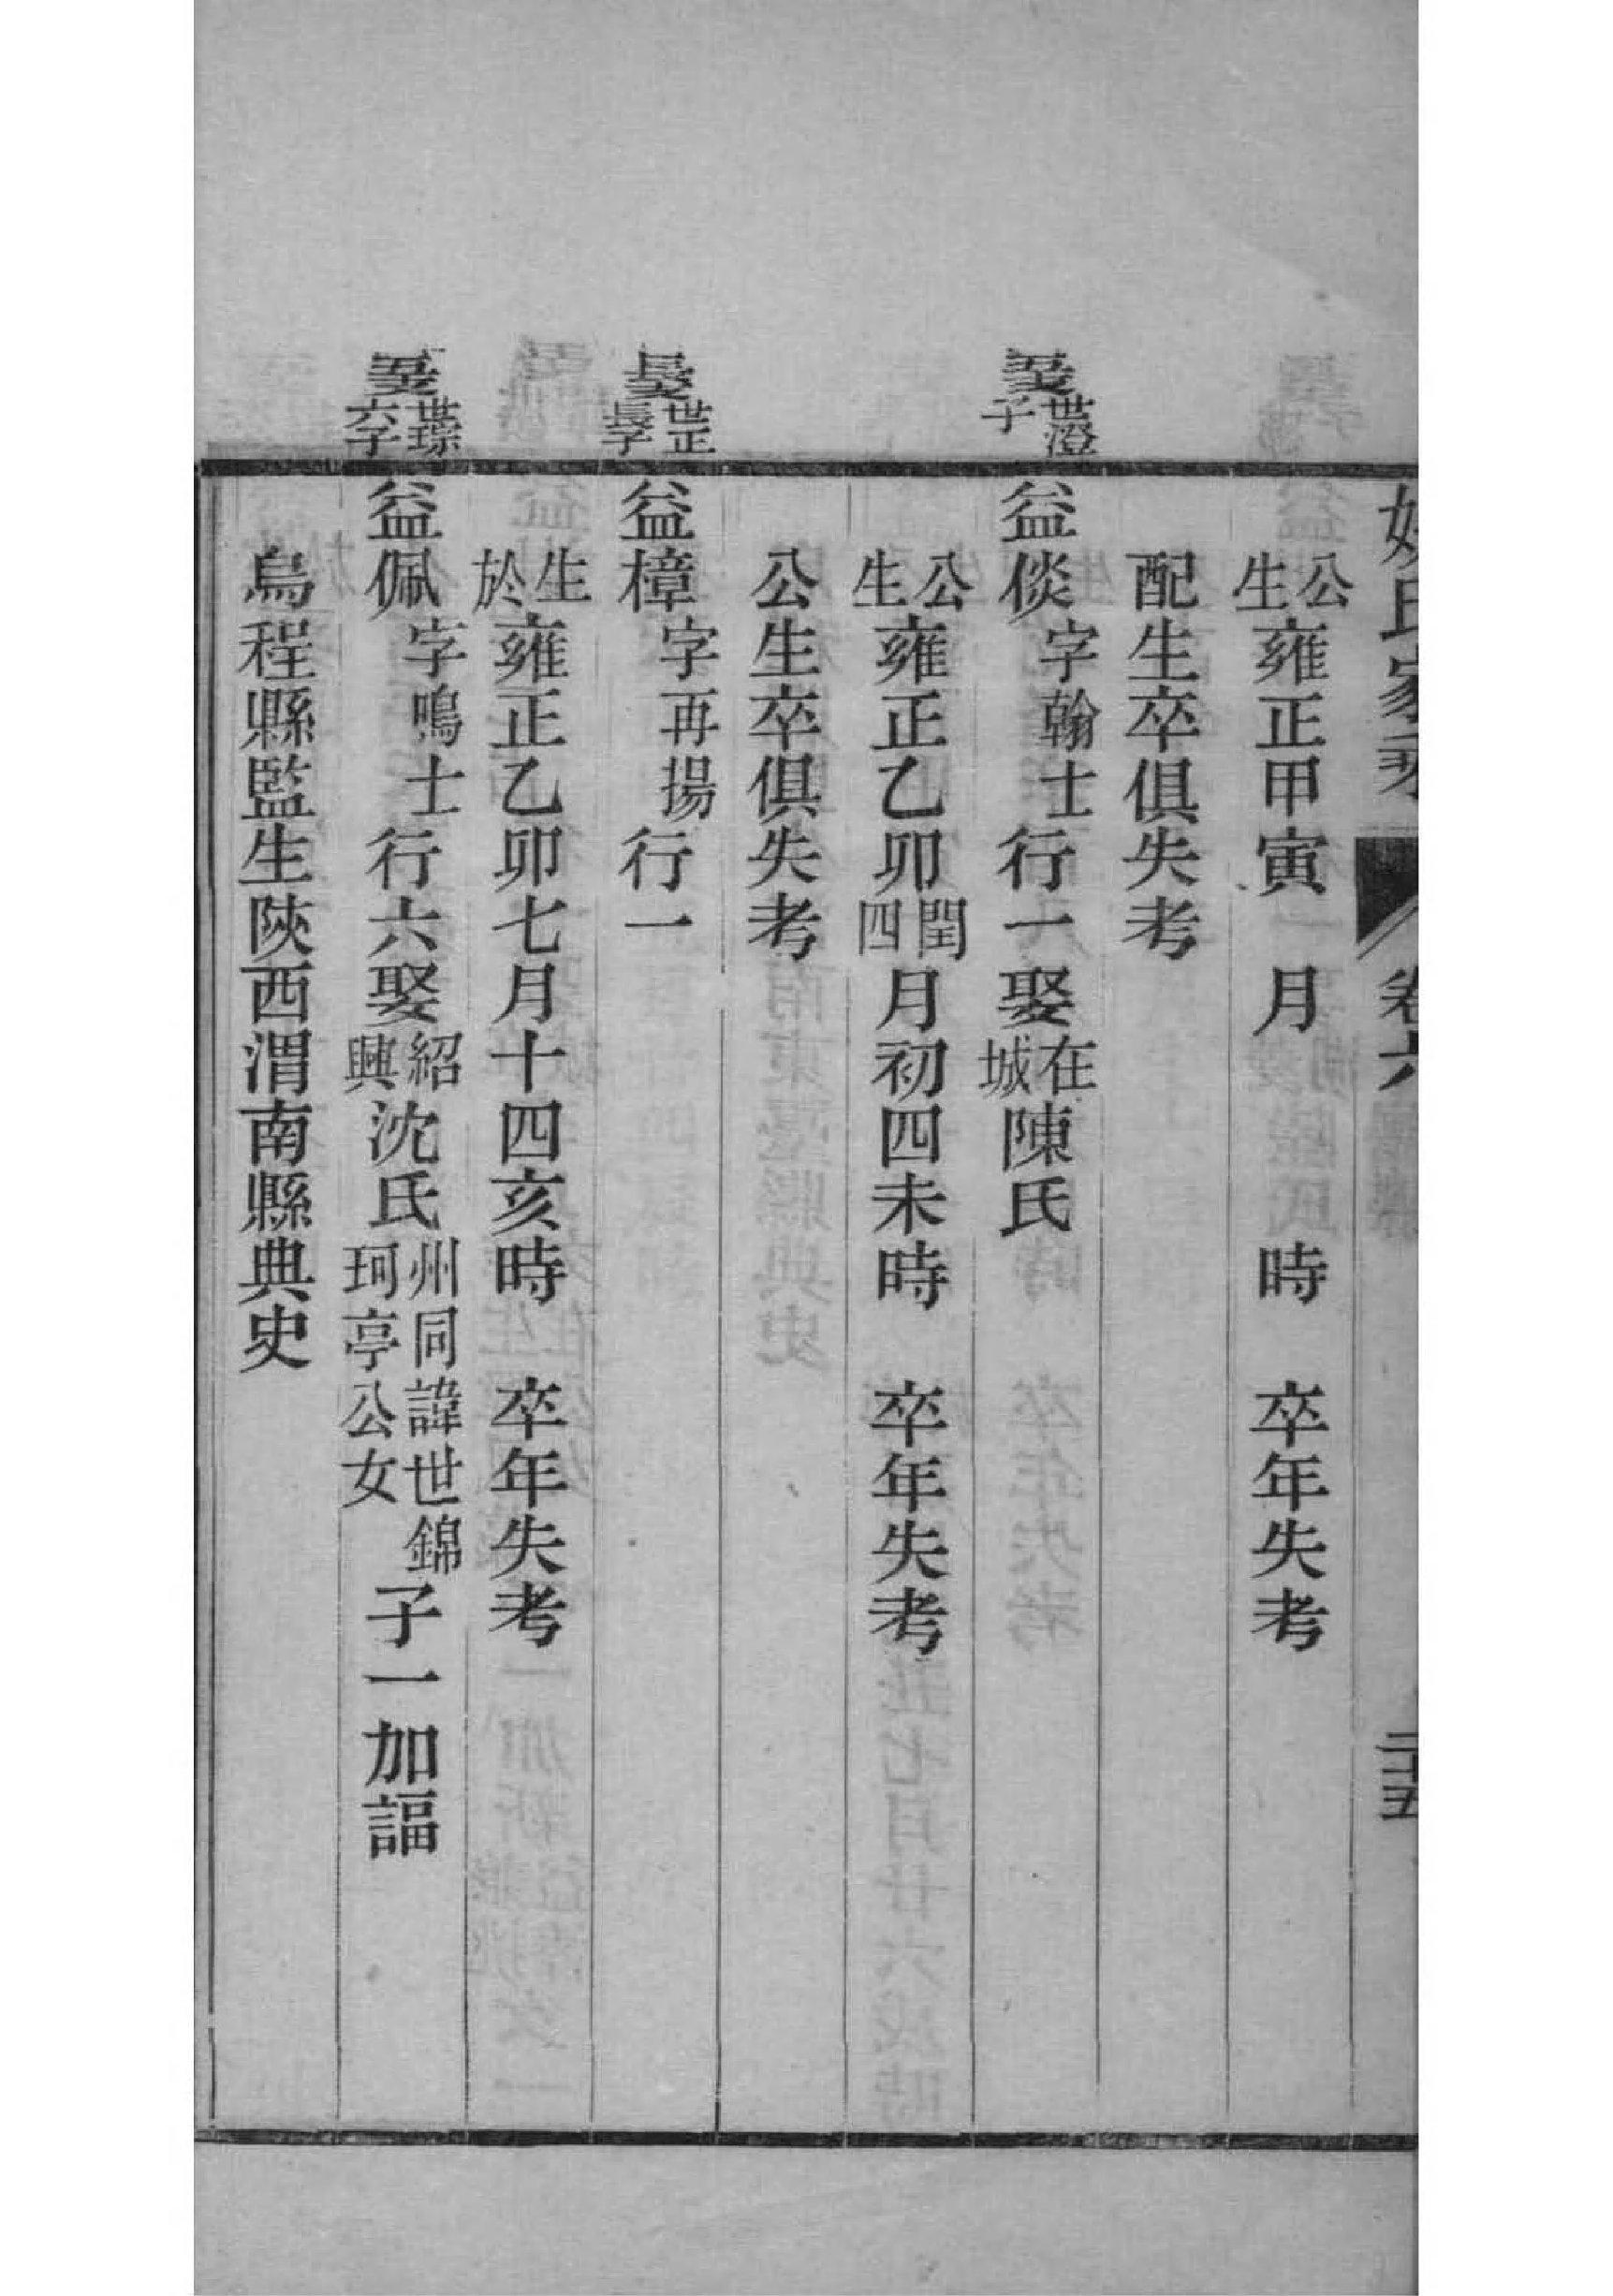 姚氏家乘 卷六 二十五
公生雍正甲寅 月 時 卒年失考
配生卒俱失考
世澄子
益倓字翰士行一娶在城陳氏
公生雍正乙卯閏四月初四未時 卒年失考
公生卒俱失考
世正長子
益樟字再揚行一
生於雍正乙卯七月十四亥時 卒年失考
世琮六子
益佩字鳴士行六娶紹興沈氏州同諱世錦珂亭公女子一加諨
烏程縣監生陝西渭南縣典史